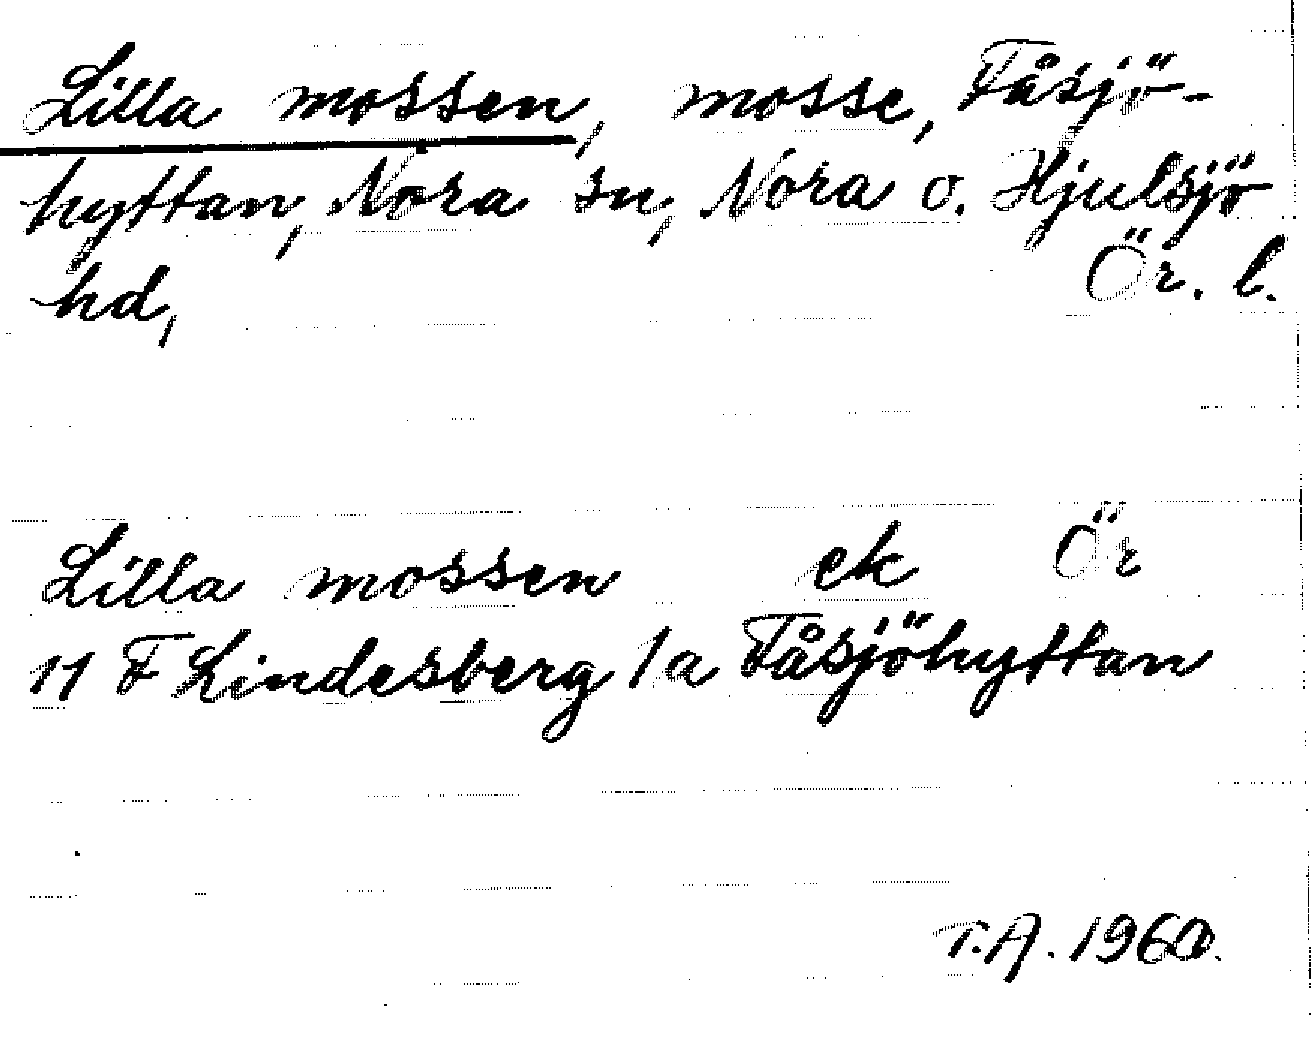 Lilla mossen, mosse, Fåsjö-
hyttan, Nora sn, Nora o. Hjulsjö
hd, Ör. l.
Lilla mossen ek Ör
11 F Lindesberg 1a Fåsjöhyttan
T.A. 1960.